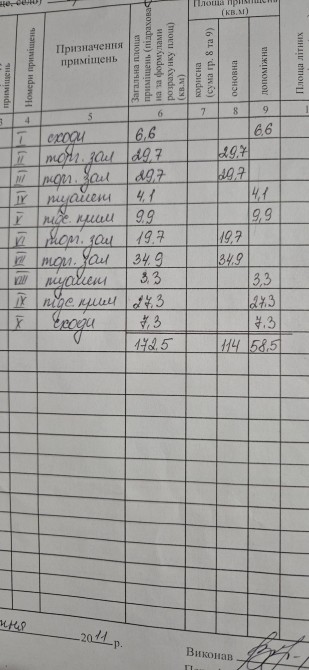 Площа приміщень
(кв.м)
приміщень
Номери приміщень
Призначення
приміщень
Загальна площа
приміщень (підрахована
на за формулами
розрахунку площ)
(кв.м)
корисна
(сума гр. 8 та 9)
основна
допоміжна
Площа літніх
3 4 5 6 7 8 9 1
I сходи 6,6 6,6
II торг. зал 29,7 29,7
III торг. зал 29,7 29,7
IV туалет 4,1 4,1
V підс. прим 9.9 9,9
VI торг. зал 19.7 19,7
VII торг. зал 34.9 34,9
VIII туалет 3.3 3,3
IX підс. прим 27,3 27,3
X сходи 7,3 7.3
172.5 114 58,5
2011 р.
Виконав